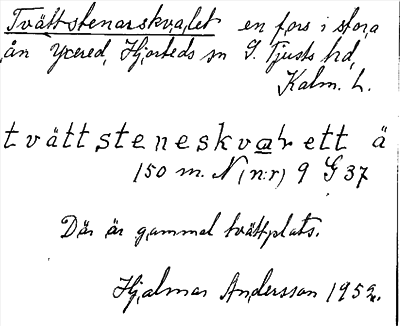 Tvättstenarskvalet en fors i stora
ån Yxered, Hjorteds sn S. Tjusts hd,
Kalm. L.
tvättsteneskvalet ett ä
150 m. N (n:r) 9 G 37
Där är gammal tvättplats.
Hjalmar Andersson 1952.